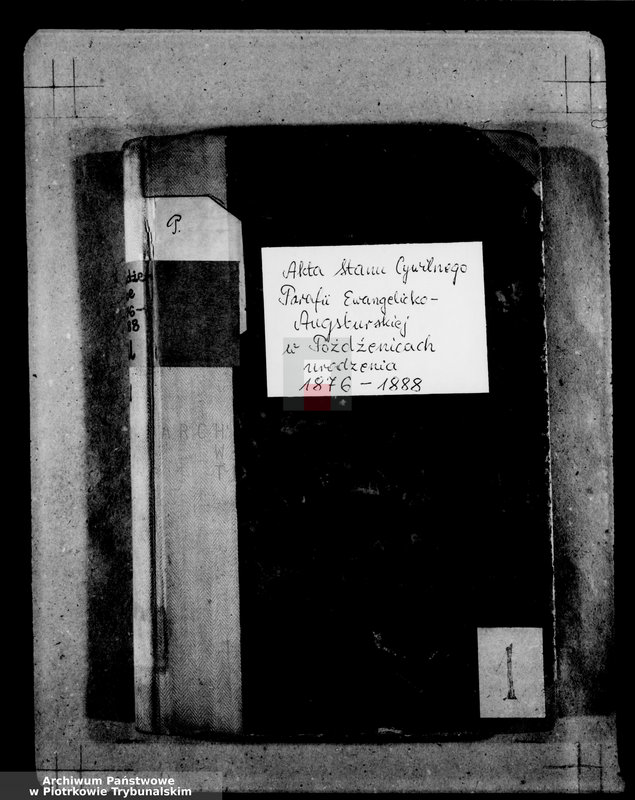 P.
Akta Stanu Cywilnego
Parafii Ewangelicko-
Augsburskiej
w Poździenicach
urodzenia
1876 - 1888
1
Archiwum Państwowe
w Piotrkowie Trybunalskim